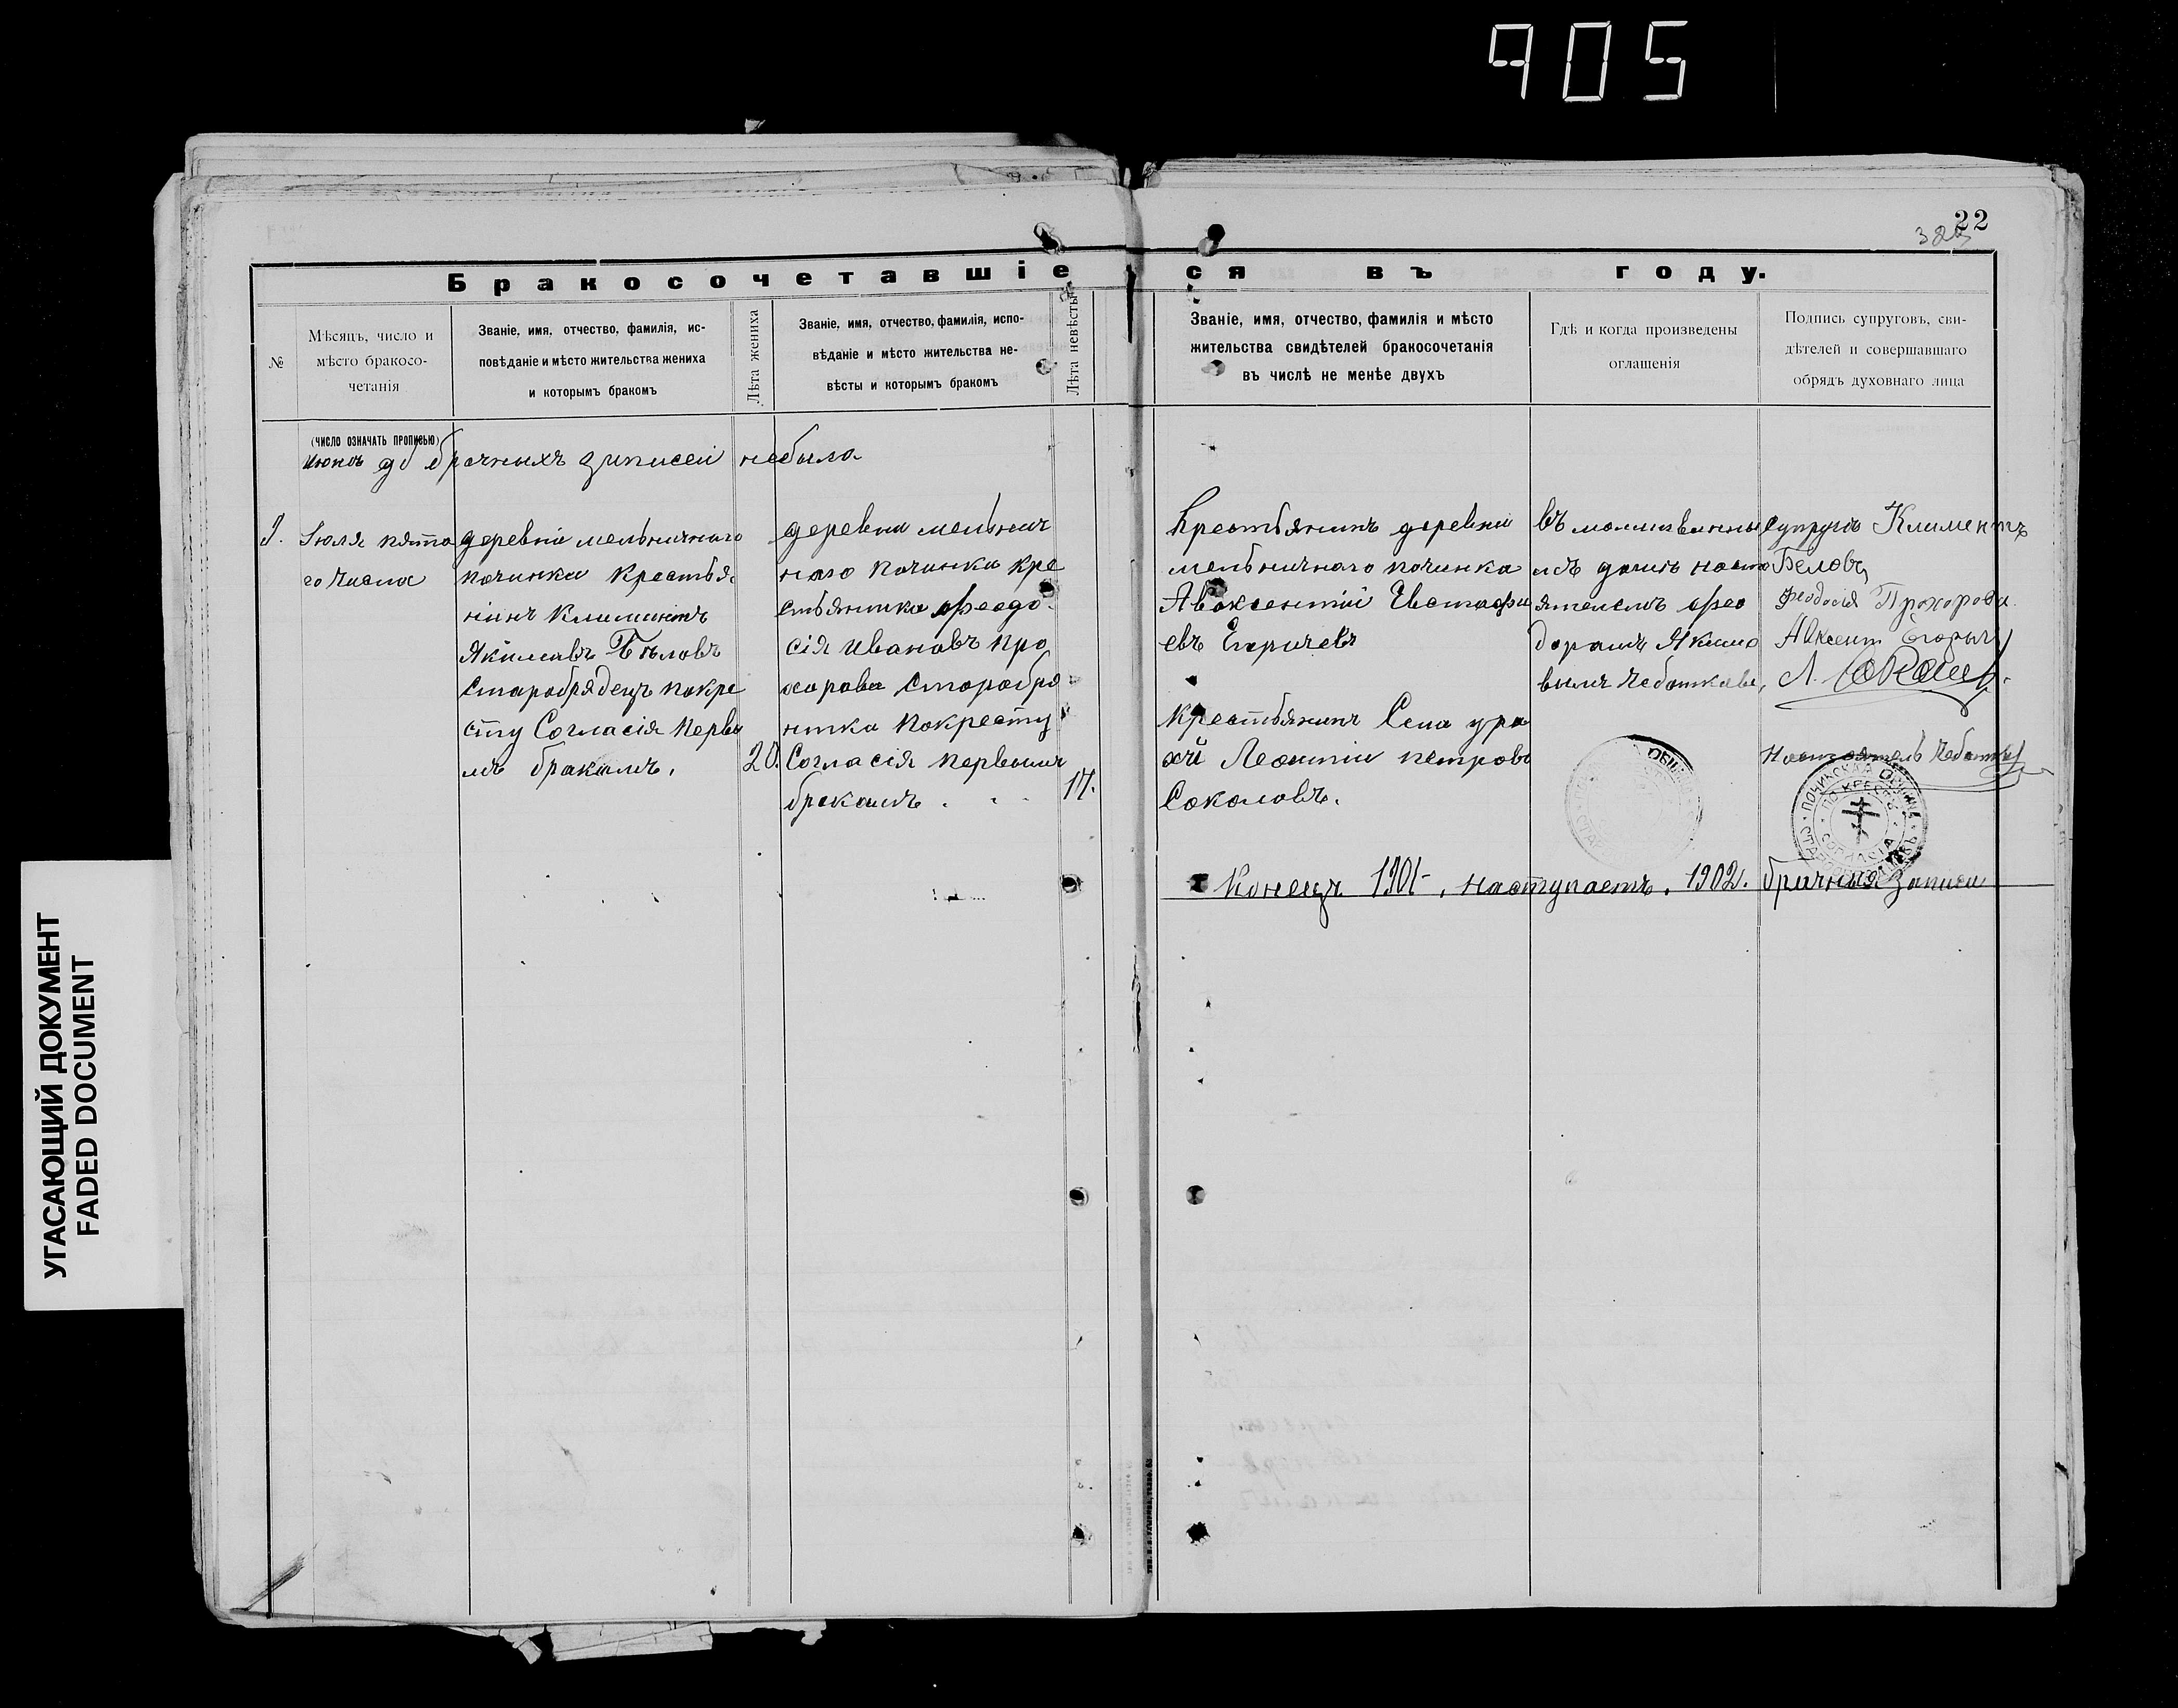 905
22
Бракосочетавшіеся въ году.
№
Мѣсяцъ, число и
мѣсто бракосо-
четанія
Званіе, имя, отчество, фамилія, ис-
повѣданіе и мѣсто жительства жениха
и которымъ бракомъ
Лѣта жениха
Званіе, имя, отчество, фамилія, испо-
вѣданіе и мѣсто жительства не-
вѣсты и которымъ бракомъ
Лѣта невѣсты
Званіе, имя, отчество, фамилія и мѣсто
жительства свидѣтелей бракосочетанія
въ числѣ не менѣе двухъ
Гдѣ и когда произведены
оглашенія
Подпись супруговъ, сви-
дѣтелей и совершавшаго
обрядъ духовнаго лица
(ЧИСЛО ОЗНАЧАТЬ ПРОПИСЬЮ)
до брачныхъ записей небыло
Іюля пято
го числа
деревни мельничнаго
починка Крестья
нинъ Климентъ
Якимавъ Бѣловъ
Старобрядецъ покре
сту Согласія Первы
мъ бракамъ.
20.
деревни мельнич
наго починка кре
стьянка Феодо
сія Ивановъ Про
харова Старобря
нтка Покресту
Согласія первымъ
бракамъ.
17.
Крестьянинъ деревни
мельничнаго починка
Авоксентій Евстафи
евъ
Крестьянинъ Села ура
хчи Леонтій петровъ
Соколовъ.
въ
мъ домѣ насто
ятелемъ Фео
дорамъ Якимо
вымъ Чебаткавы,
Супруги Климентъ
Беловъ,
Феодосія Прохорова
Авксент
Л. Соколовъ.
Настоятель Чебатк
ПО КРЕСТУ
СОГЛАСІЯ
Конецъ 1901, наступаетъ. 1902. брачныя записи
УГАСАЮЩИЙ ДОКУМЕНТ
FADED DOCUMENT